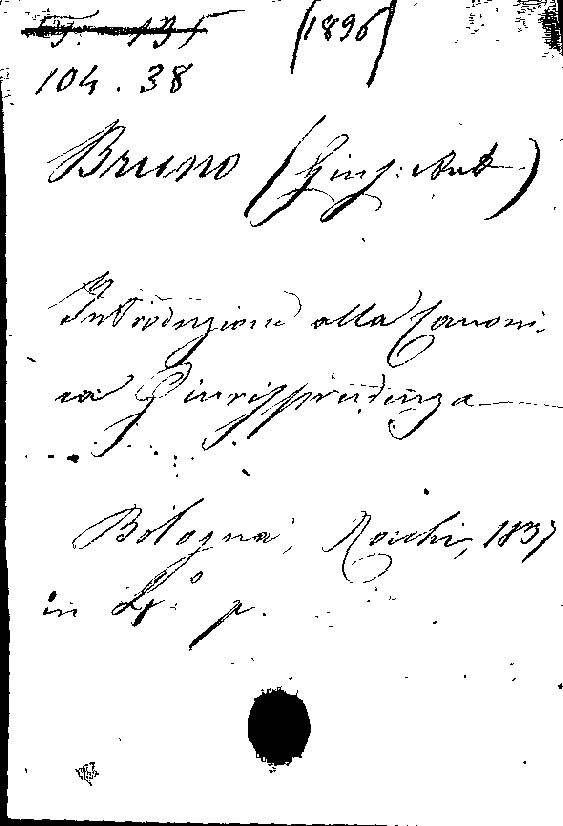 (1896)
104. 38
Bruno (Gius: Ant)
Introduzione alla Canoni-
ca Giurisprudenza
Bologna, Rocchi, 1837
in 4.° p.